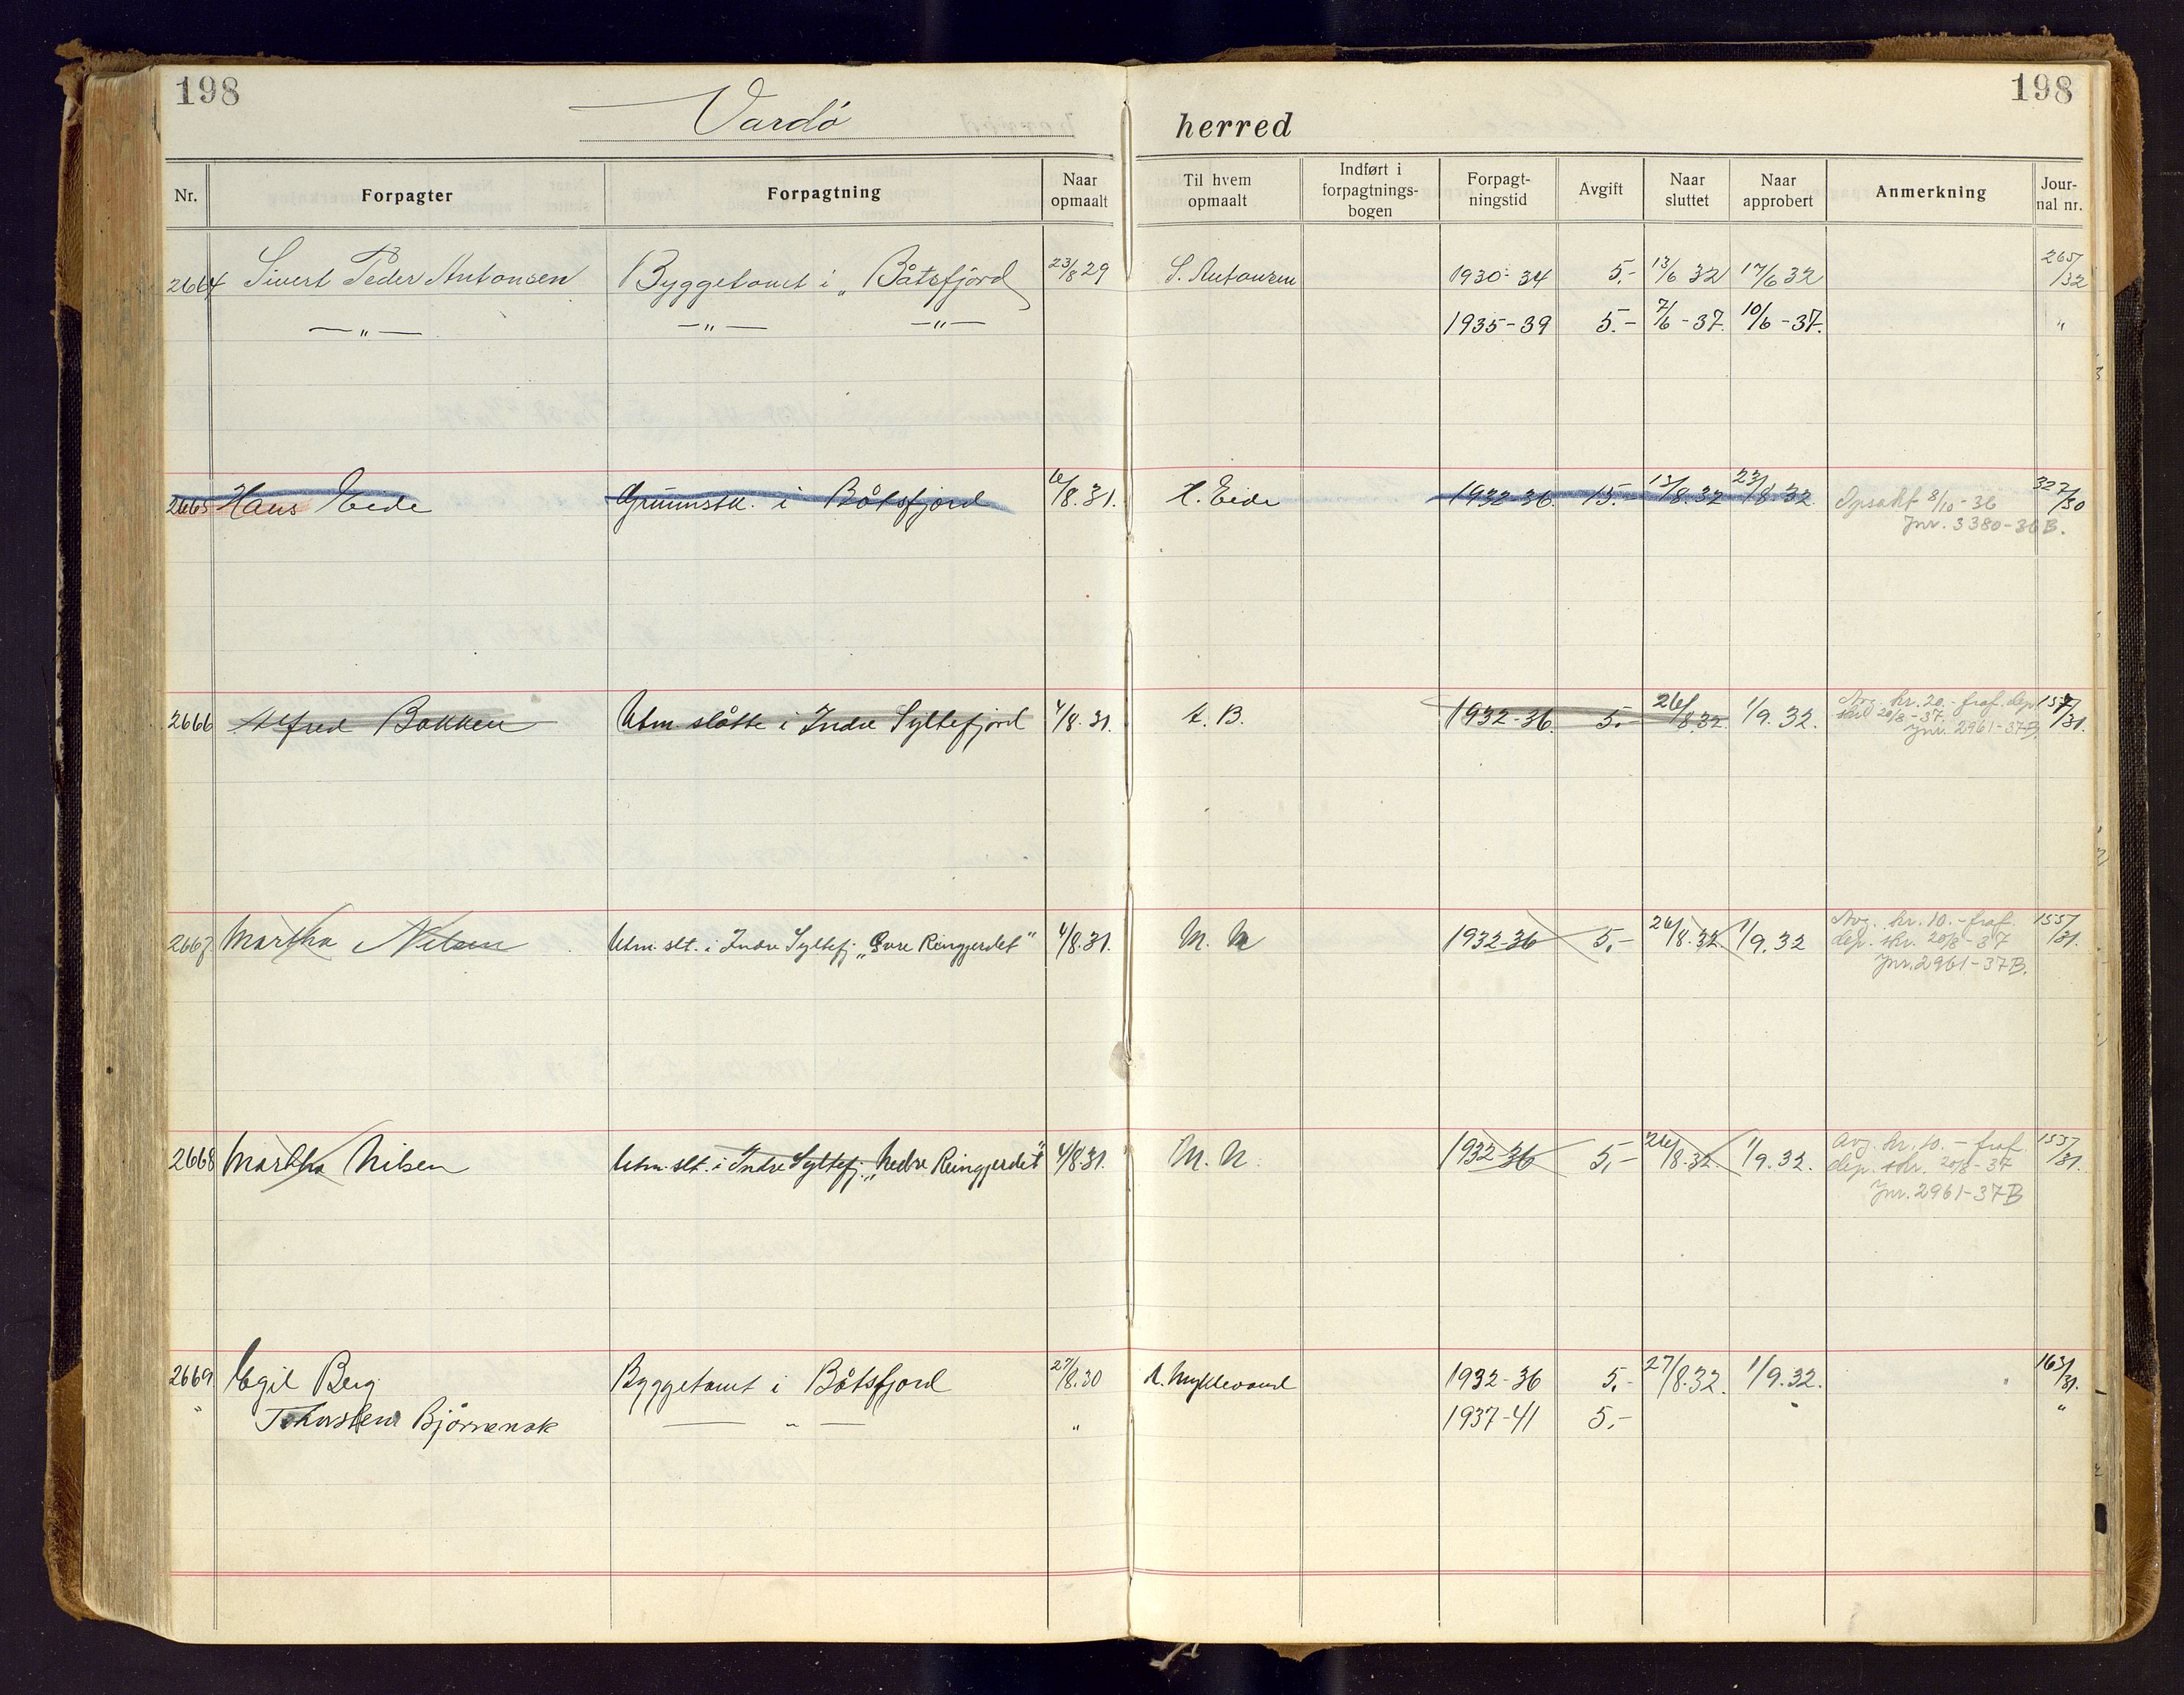 198
198
Vardö herred
Nr. Forpagter Forpagtning Naar opmaalt Til hvem opmaalt Indført i forpagtnings-bogen Forpagt-ningstid Avgift Naar sluttet Naar approbert Anmerkning Jour-nal nr.
2664 Sivert Peder Antonsen Byggetomt i „Båtsfjord 23/8 29 S. Antonsen 1930-34 5.- 13/6 32 17/6 32 265/32
—„— —„— —„— 1935-39 5.- 7/6-37. 10/6-37. "
2665 Hans Eide Grunnstk. i Båtsfjord /8.31. H. Eide 1932-36. 15.- 13/8.32 23/8.32 Opsakt 8/10-36 327/30
Jnr. 3380-36B.
2666 Alfred Bakken Utm. slåtte i Indre Syltefjord 4/8.31. A. B. 1932-36. 5.- 26/8.32. 1/9.32. Avg. kr. 20.- fraf. dep. 157/31.
skr. 20/8-37.
Jnr. 2961-37B.
2667 Martha Nilsen Utm. slt. i Indre Syltefj. „Øvre Reingjerdet" 4/8.31. M. N 1932-36 5,- 26/8.32. 1/9.32 Avg. kr. 10.- fraf. 155/31.
dep. skr. 20/8-37
Jnr. 2961-37B.
2668 Martha Nilsen Utm. slt. i Indre Syltefj. „Nedre Reingjerdet" 4/8.31. M. N. 1932-36 5,- 26/8.32. 1/9.32. Avg. kr. 10.- fraf. 155/31.
dep. skr. 20/8-37
Jnr. 2961-37B
2669 Egil Berg Byggetomt i Båtsfjord 27/8.30 A. Myklevand 1932-36 5,- 27/8.32. 1/9.32. 163/31.
" Bjørvenak — " — " 1937-41 5,- "